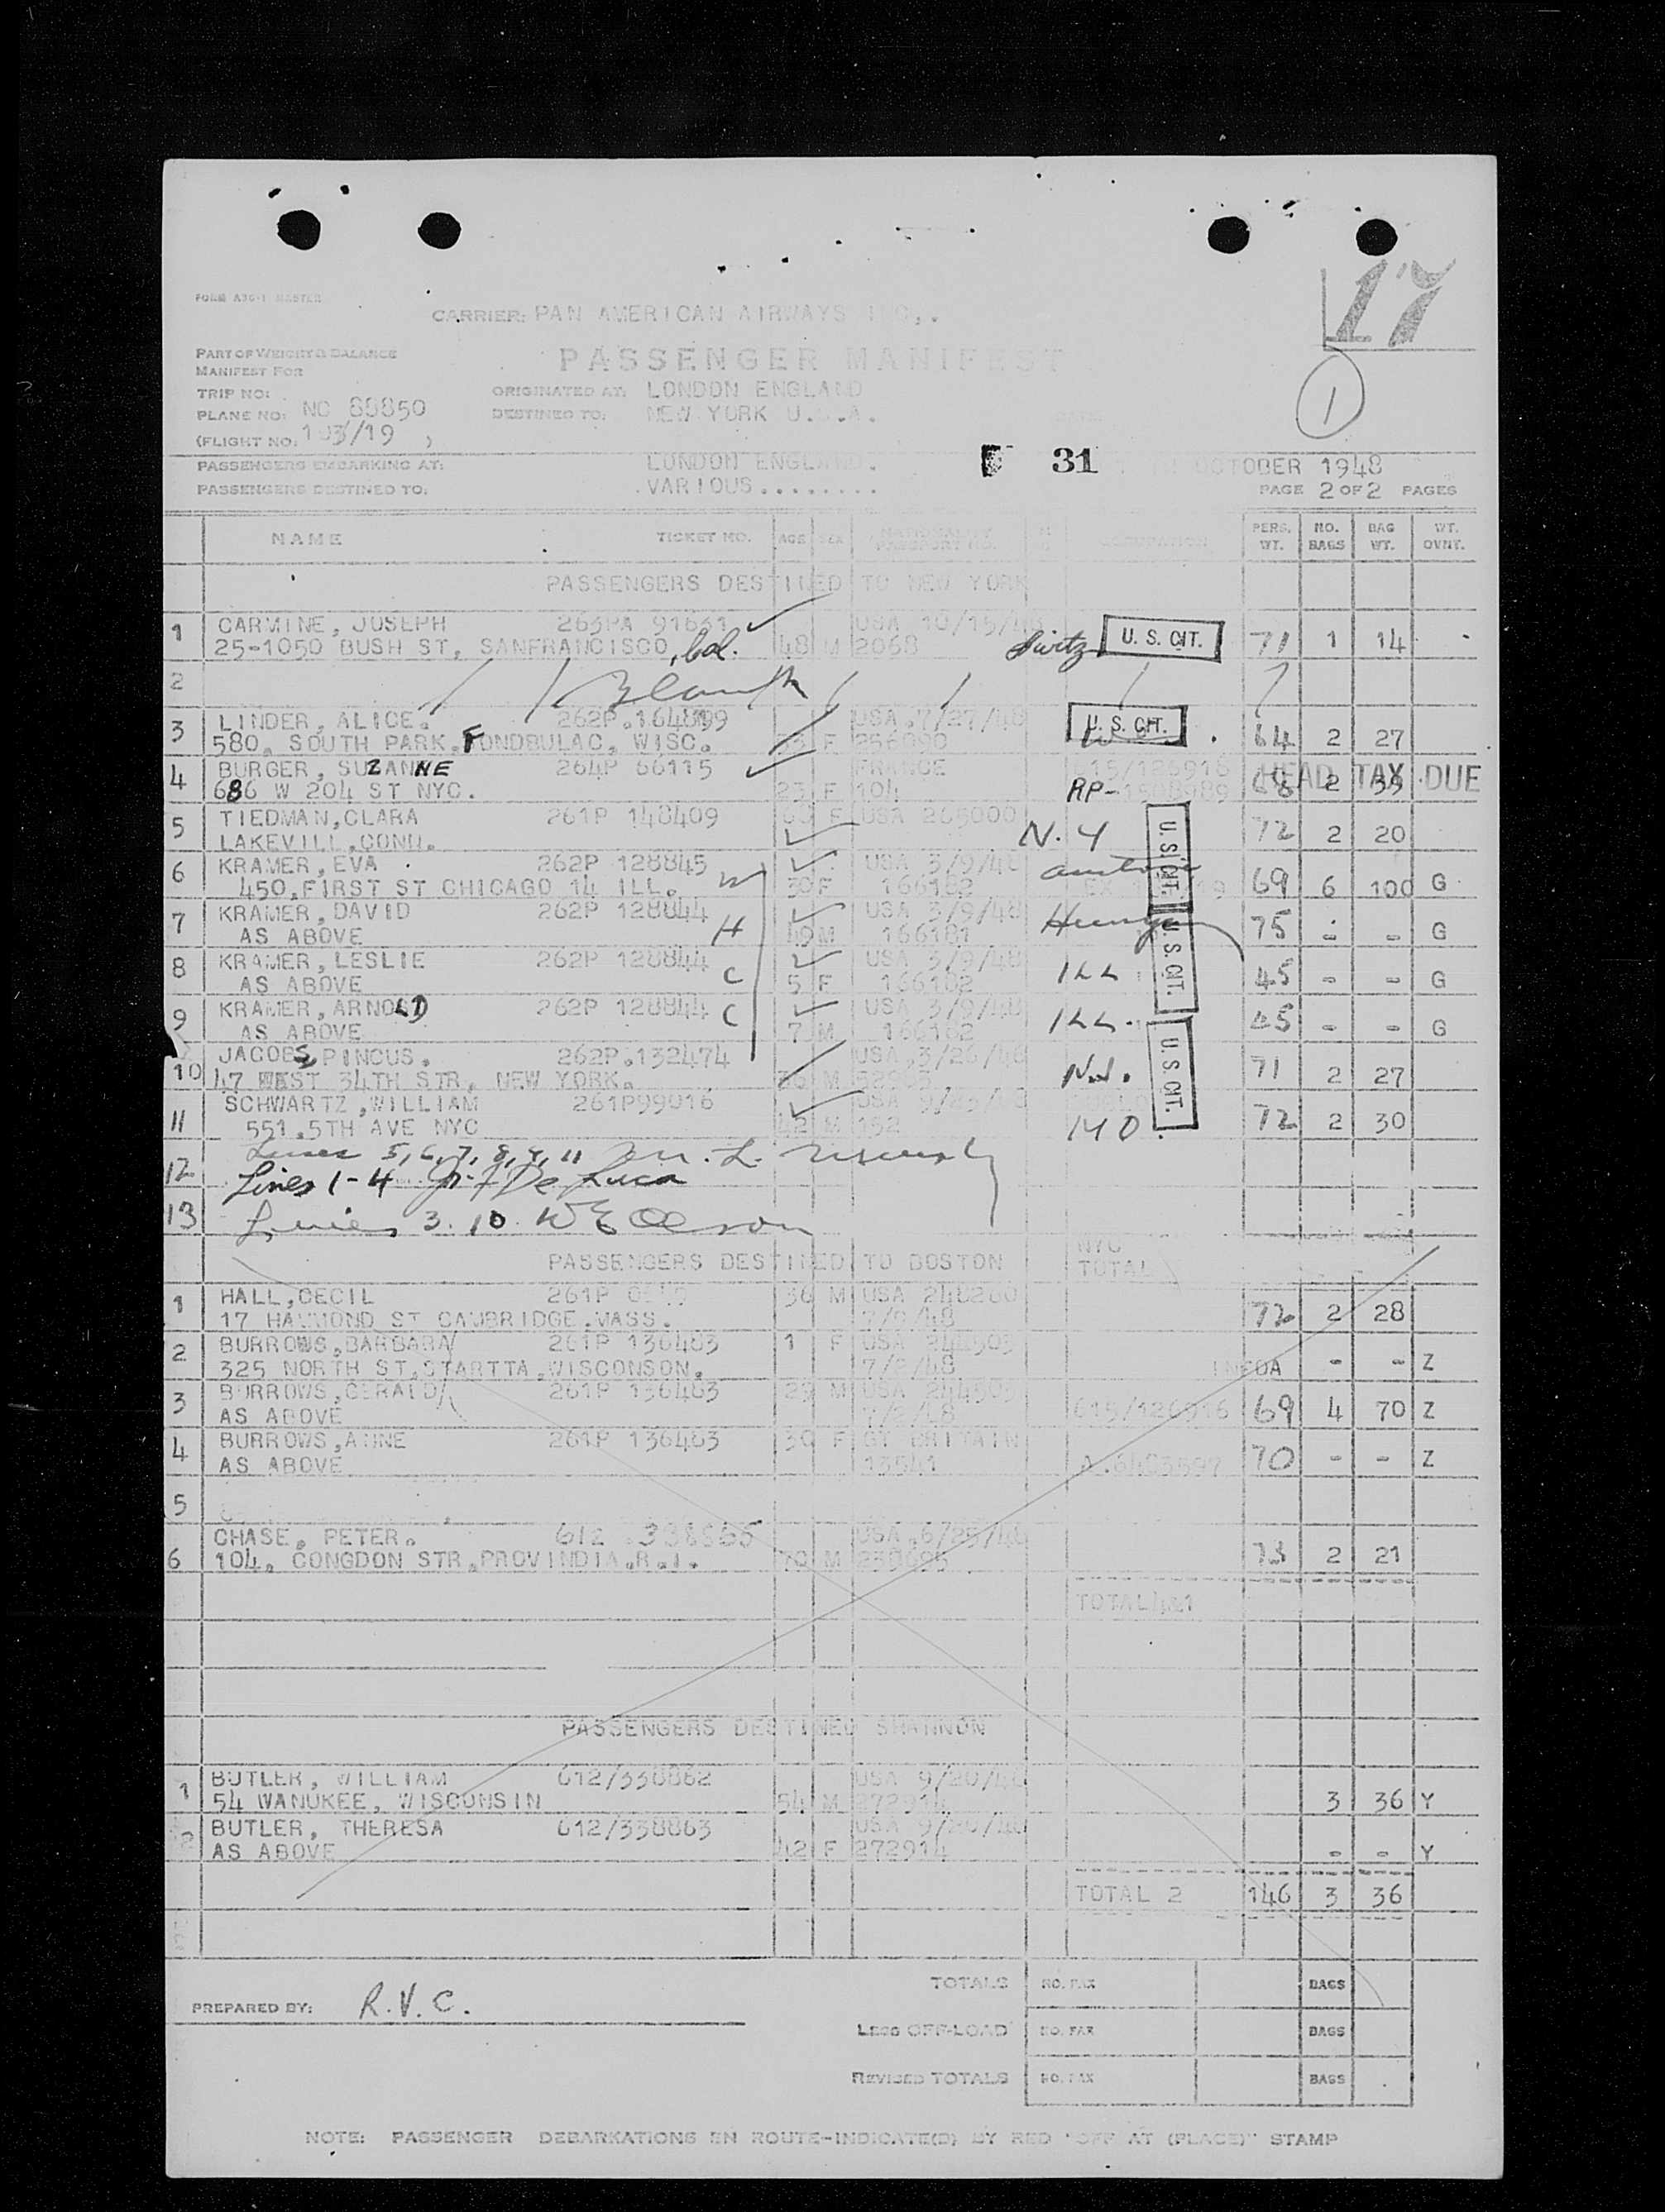 17
FORM MASTER
CARRIER: PAN AMERICAN AIRWAYS INC,.
PART OF WEIGHT & BALANCE
MANIFEST FOR
PASSENGER MANIFEST
1
TRIP NO:
ORIGINATED AT: LONDON ENGLAND
PLANE NO: NC 88850
DESTINED TO: NEW YORK U.S.A.
DATE
(FLIGHT NO. 103/19 )
PASSENGERS EMBARKING AT: LONDON ENGLAND.
31 OCTOBER 1948
PASSENGERS DESTINED TO: .VARIOUS........
PAGE 2 OF 2 PAGES
NAME TICKET NO. AGE SEX NATIONALITY PASSPORT NO. OCCUPATION PERS. WT. NO. BAGS BAG WT. WT. OVNT.
PASSENGERS DESTINED TO NEW YORK
1 CARMINE, JOSEPH 263PA 91831 USA 10/15/48
25-1050 BUSH ST, SANFRANCISCO, Cal. 48 M 2068 Switz U. S. CIT. 71 1 14
2 Blank
3 LINDER, ALICE. 262P.164899 USA.7/27/48 U. S. CIT.
580, SOUTH PARK. FONDBULAC, WISC. F 64 2 27
4 BURGER, SUZANNE 264P 66115 FRANCE 615/126916 HEAD TAX DUE
686 W 204 ST NYC. 23 F 104 RP-1508989 68 2 39
5 TIEDMAN,CLARA 261P 148409 60 F USA 265000
LAKEVILL,CONN. N.Y U. S. CIT. 72 2 20
6 KRAMER, EVA 262P 128845 USA 3/9/48
450,FIRST ST CHICAGO 14 ILL. W 30 F 166182 69 6 100 G
7 KRAMER, DAVID 262P 128844 USA 3/9/48
AS ABOVE H 49 M 166181 U. S. CIT. 75 - - G
8 KRAMER, LESLIE 262P 128844 USA 3/9/48
AS ABOVE C 5 F 166182 ILL. 45 - - G
9 KRAMER, ARNOLD 262P 128844 USA 3/9/48
AS ABOVE C 7 M 166182 ILL. 45 - - G
10 JACOBS, PINCUS. 262P.132474 USA.3/26/48
47 WEST 34TH STR, NEW YORK. 36 M U. S. CIT. 71 2 27
11 SCHWARTZ,WILLIAM 261P99016 USA
551.5TH AVE NYC 42 M 192 MO. 72 2 30
12 Lines 5, 6, 7, 8, 9, 11
Lines 1-4 De Luca
13 Lines 3. 10. W E Olson
PASSENGERS DESTINED TO BOSTON NYC TOTAL
1 HALL,CECIL 261P 36 M USA 248280
17 HAMMOND ST CAMBRIDGE.MASS. 7/9/48 72 2 28
2 BURROWS,BARBARA 261P 136463 1 F USA 244503
325 NORTH ST,STARTTA,WISCONSON. 7/2/48 - - Z
3 BURROWS,GERALD 261P 136463 29 M USA 244503
AS ABOVE 7/2/48 615/126916 69 4 70 Z
4 BURROWS,ANNE 261P 136463 30 F GT BRITAIN
AS ABOVE 13541 A.6403597 70 - - Z
5
CHASE, PETER. 612 .338865 USA.6/25/48
6 104, CONGDON STR.PROVINDIA.R.I. 70 M 73 2 21
TOTAL
PASSENGERS DESTINED SHANNON
1 BUTLER, WILLIAM 612/338862 USA 9/20/48
54 WANUKEE, WISCONSIN 54 M 272914 3 36 Y
2 BUTLER, THERESA 612/338863 USA 9/20/48
AS ABOVE 42 F 272914 - - Y
TOTAL 2 146 3 36
TOTALS NO. PAX BAGS
PREPARED BY: R.V.C.
LESS OFF-LOAD NO. PAX BAGS
REVISED TOTALS NO. PAX BAGS
NOTE: PASSENGER DEBARKATIONS EN ROUTE-INDICATE(D) BY RED "OFF AT (PLACE)" STAMP